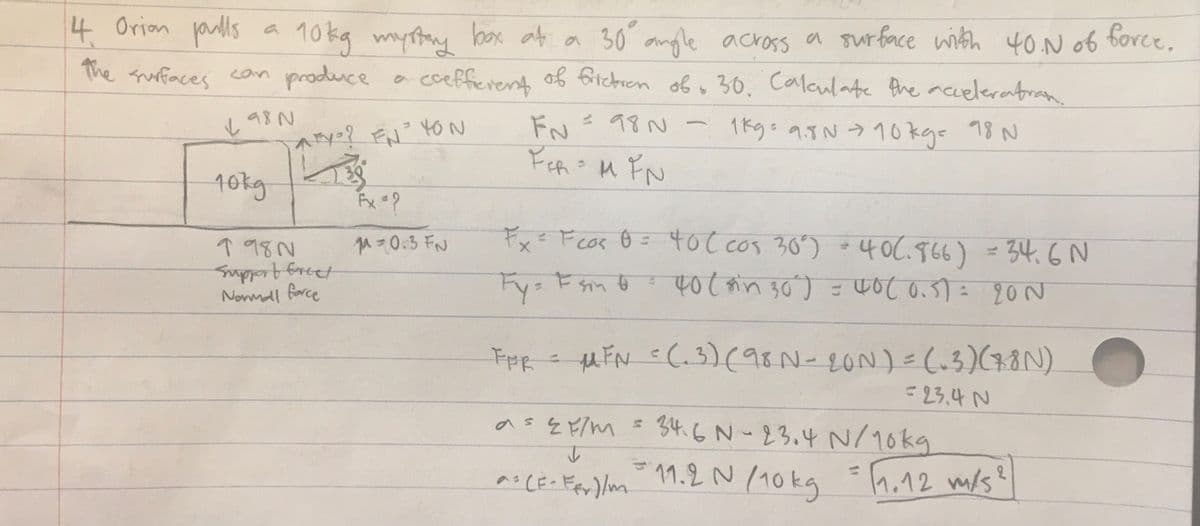 4. Orion pulls a 10kg mystery box at a 30° angle across a surface with 40.N of force.
The surfaces can produce a coefficient of friction of .30. Calculate the acceleration.
↓ 98N
↑ Fy=? FN = 40N
30°
10kg
Fx=?
↑ 98N
μ=0.3 FN
Support force/
Normall force
FN = 98N - 1kg = 9.8N → 10kg= 98N
FFR = μ FN
Fx = Fcos θ = 40(cos 30°) = 40(.866) = 34.6N
Fy = F sin θ = 40(sin 30°) = 40(0.5) = 20N
FFR = μFN = (.3)(98N-20N) = (.3)(78N)
= 23.4N
a = ΣF/m = 34.6N - 23.4N/10kg
↓
a=(F-FFr)/m = 11.2N/10kg = 1.12 m/s²